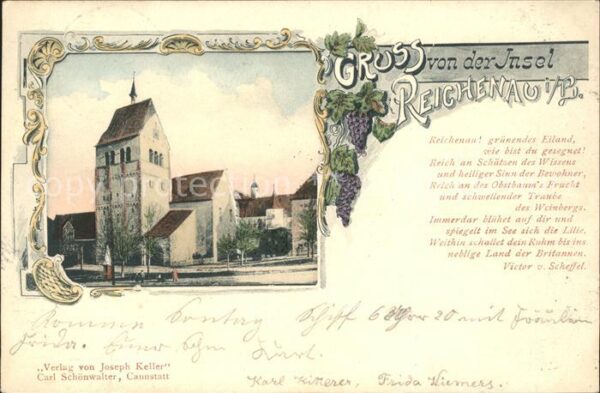 GRUSS von der Insel
REICHENAU i/B.
Reichenau! grünendes Eiland,
wie bist du gesegnet!
Reich an Schätzen des Wissens
und heiliger Sinn der Bewohner,
Reich an des Obstbaum's Frucht
und schwellender Traube
des Weinbergs.
Immerdar blühet auf dir und
spiegelt im See sich die Lilie.
Weithin schallet dein Ruhm bis ins
neblige Land der Britannen.
Victor v. Scheffel.
Komme Sonntag Schiff 6 Uhr 20 mit Fräulein
Frida. Euer Sohn Karl.
„Verlag von Joseph Keller"
Carl Schönwalter, Cannstatt
Karl Kitterer, Frida Wiemers.